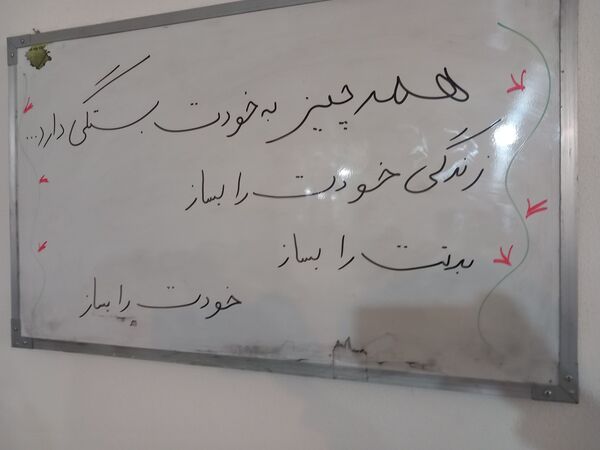 همه چیز به خودت بستگی دارد...
زندگی خودت را بساز
بدنت را بساز
خودت را بساز